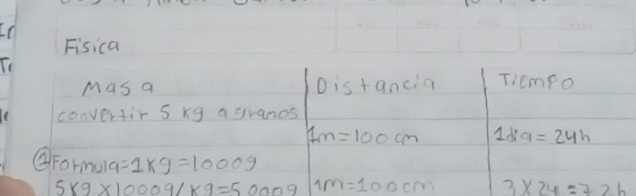 Fisica
Masa
Distancia
Tiempo
convertir 5 kg a gramos
1m=100 cm
1dia = 24h
Formula=1kg=1000g
5kg x1000g/kg=5000g
1m=100cm
3x24=72h